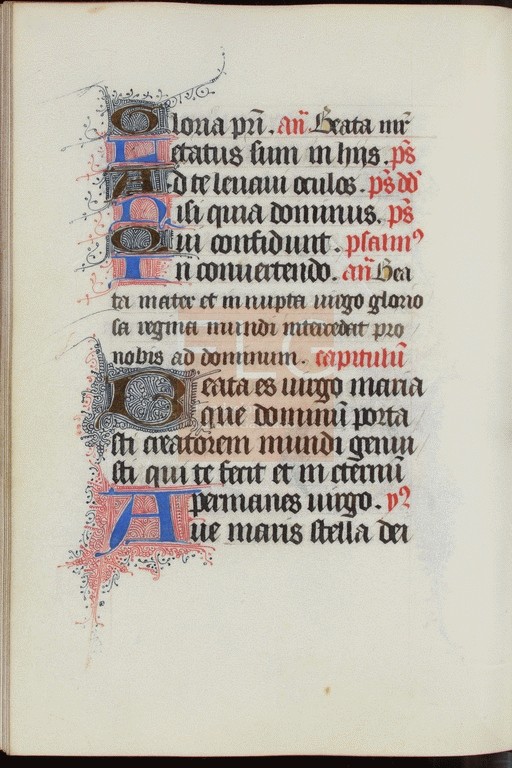 Gloria pr̄i. an̄ Beata mr̄
Letatus sum in hijs. ps̄
Ad te leuaui oculos. ps̄ dd̄
Nisi quia dominus. ps̄
Qui confidunt. psalmꝰ
In conuertendo. an̄ Bea
ta mater et innupta uirgo glorio
sa regina mundi intercedat pro
nobis ad dominum. capitulū
Beata es uirgo maria
que dominū porta
sti creatorem mundi genui
sti qui te fecit et in eternū
permanes uirgo. yꝰ
Aue maris stella dei